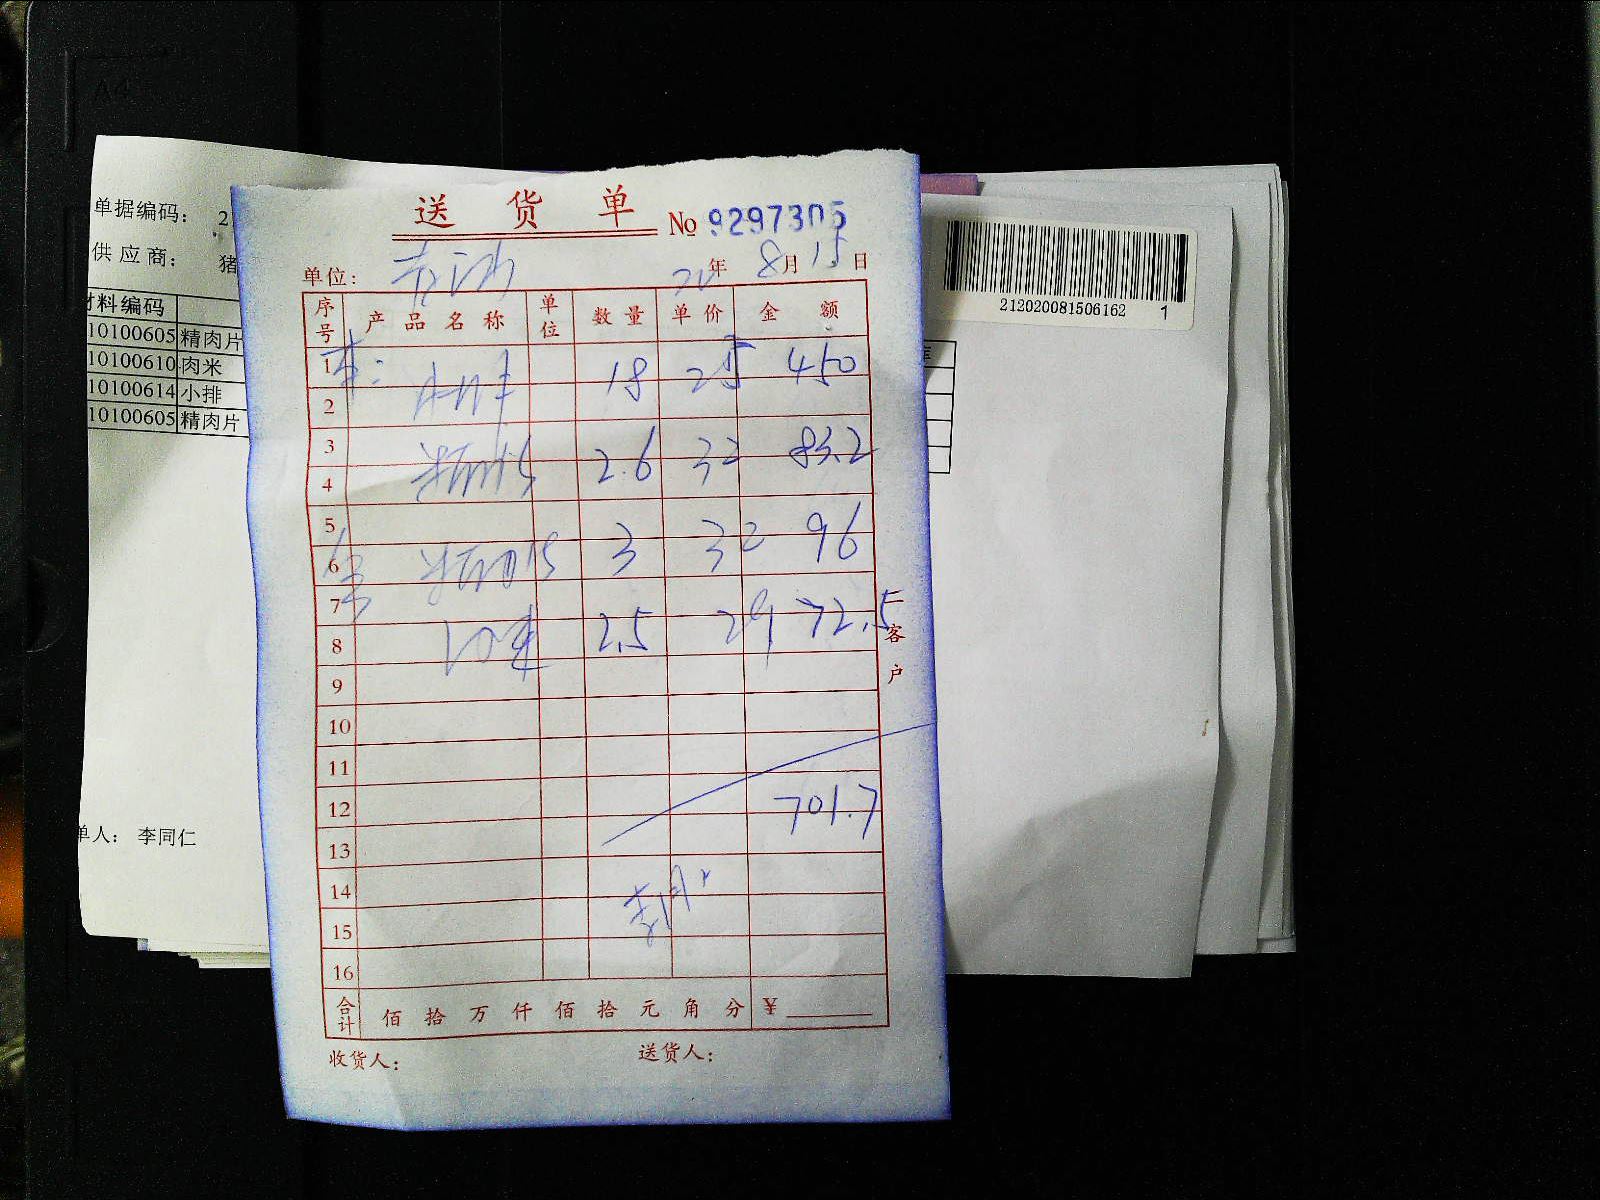 A4
单据编码： 2
供应商： 猪
材料编码
10100605 精肉片
10100610 肉米
10100614 小排
10100605 精肉片
单人： 李同仁
212020081506162 1
送货单 No 9297305
单位： 20年 8月15日
序号 产品名称 单位 数量 单价 金额
1 18 25 450
2
3 2.6 32 83.2
4
5
6 精肉片 3 32 96
7
8 肉米 2.5 29 72.5
9
10
11
12 701.7
13
14
15
16
合计 佰拾万仟佰拾元角分 ¥
收货人： 送货人：
一客户